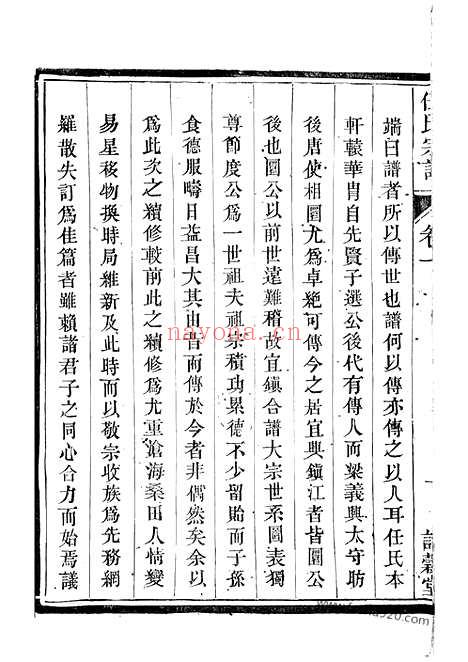 任氏宗譜
卷一
端曰譜者所以傳世也譜何以傳亦傳之以人耳任氏本
軒轅華胄自先賢子選公後代有傳人而梁義興太守昉
後唐使相圜尤為卓絶可傳今之居宜興鎮江者皆圜公
後也圜公以前世遠難稽故宜鎮合譜大宗世系圖表獨
尊節度公為一世祖夫祖宗積功累德不少留貽而子孫
食德服疇日益昌大其由昔而傳於今者非偶然矣余以
為此次之續修較前此之續修為尤重滄海桑田人情變
易星移物換時局維新及此時而以敬宗收族為先務網
羅散失訂為佳篇者雖賴諸君子之同心合力而始焉議
一
nayona.cn